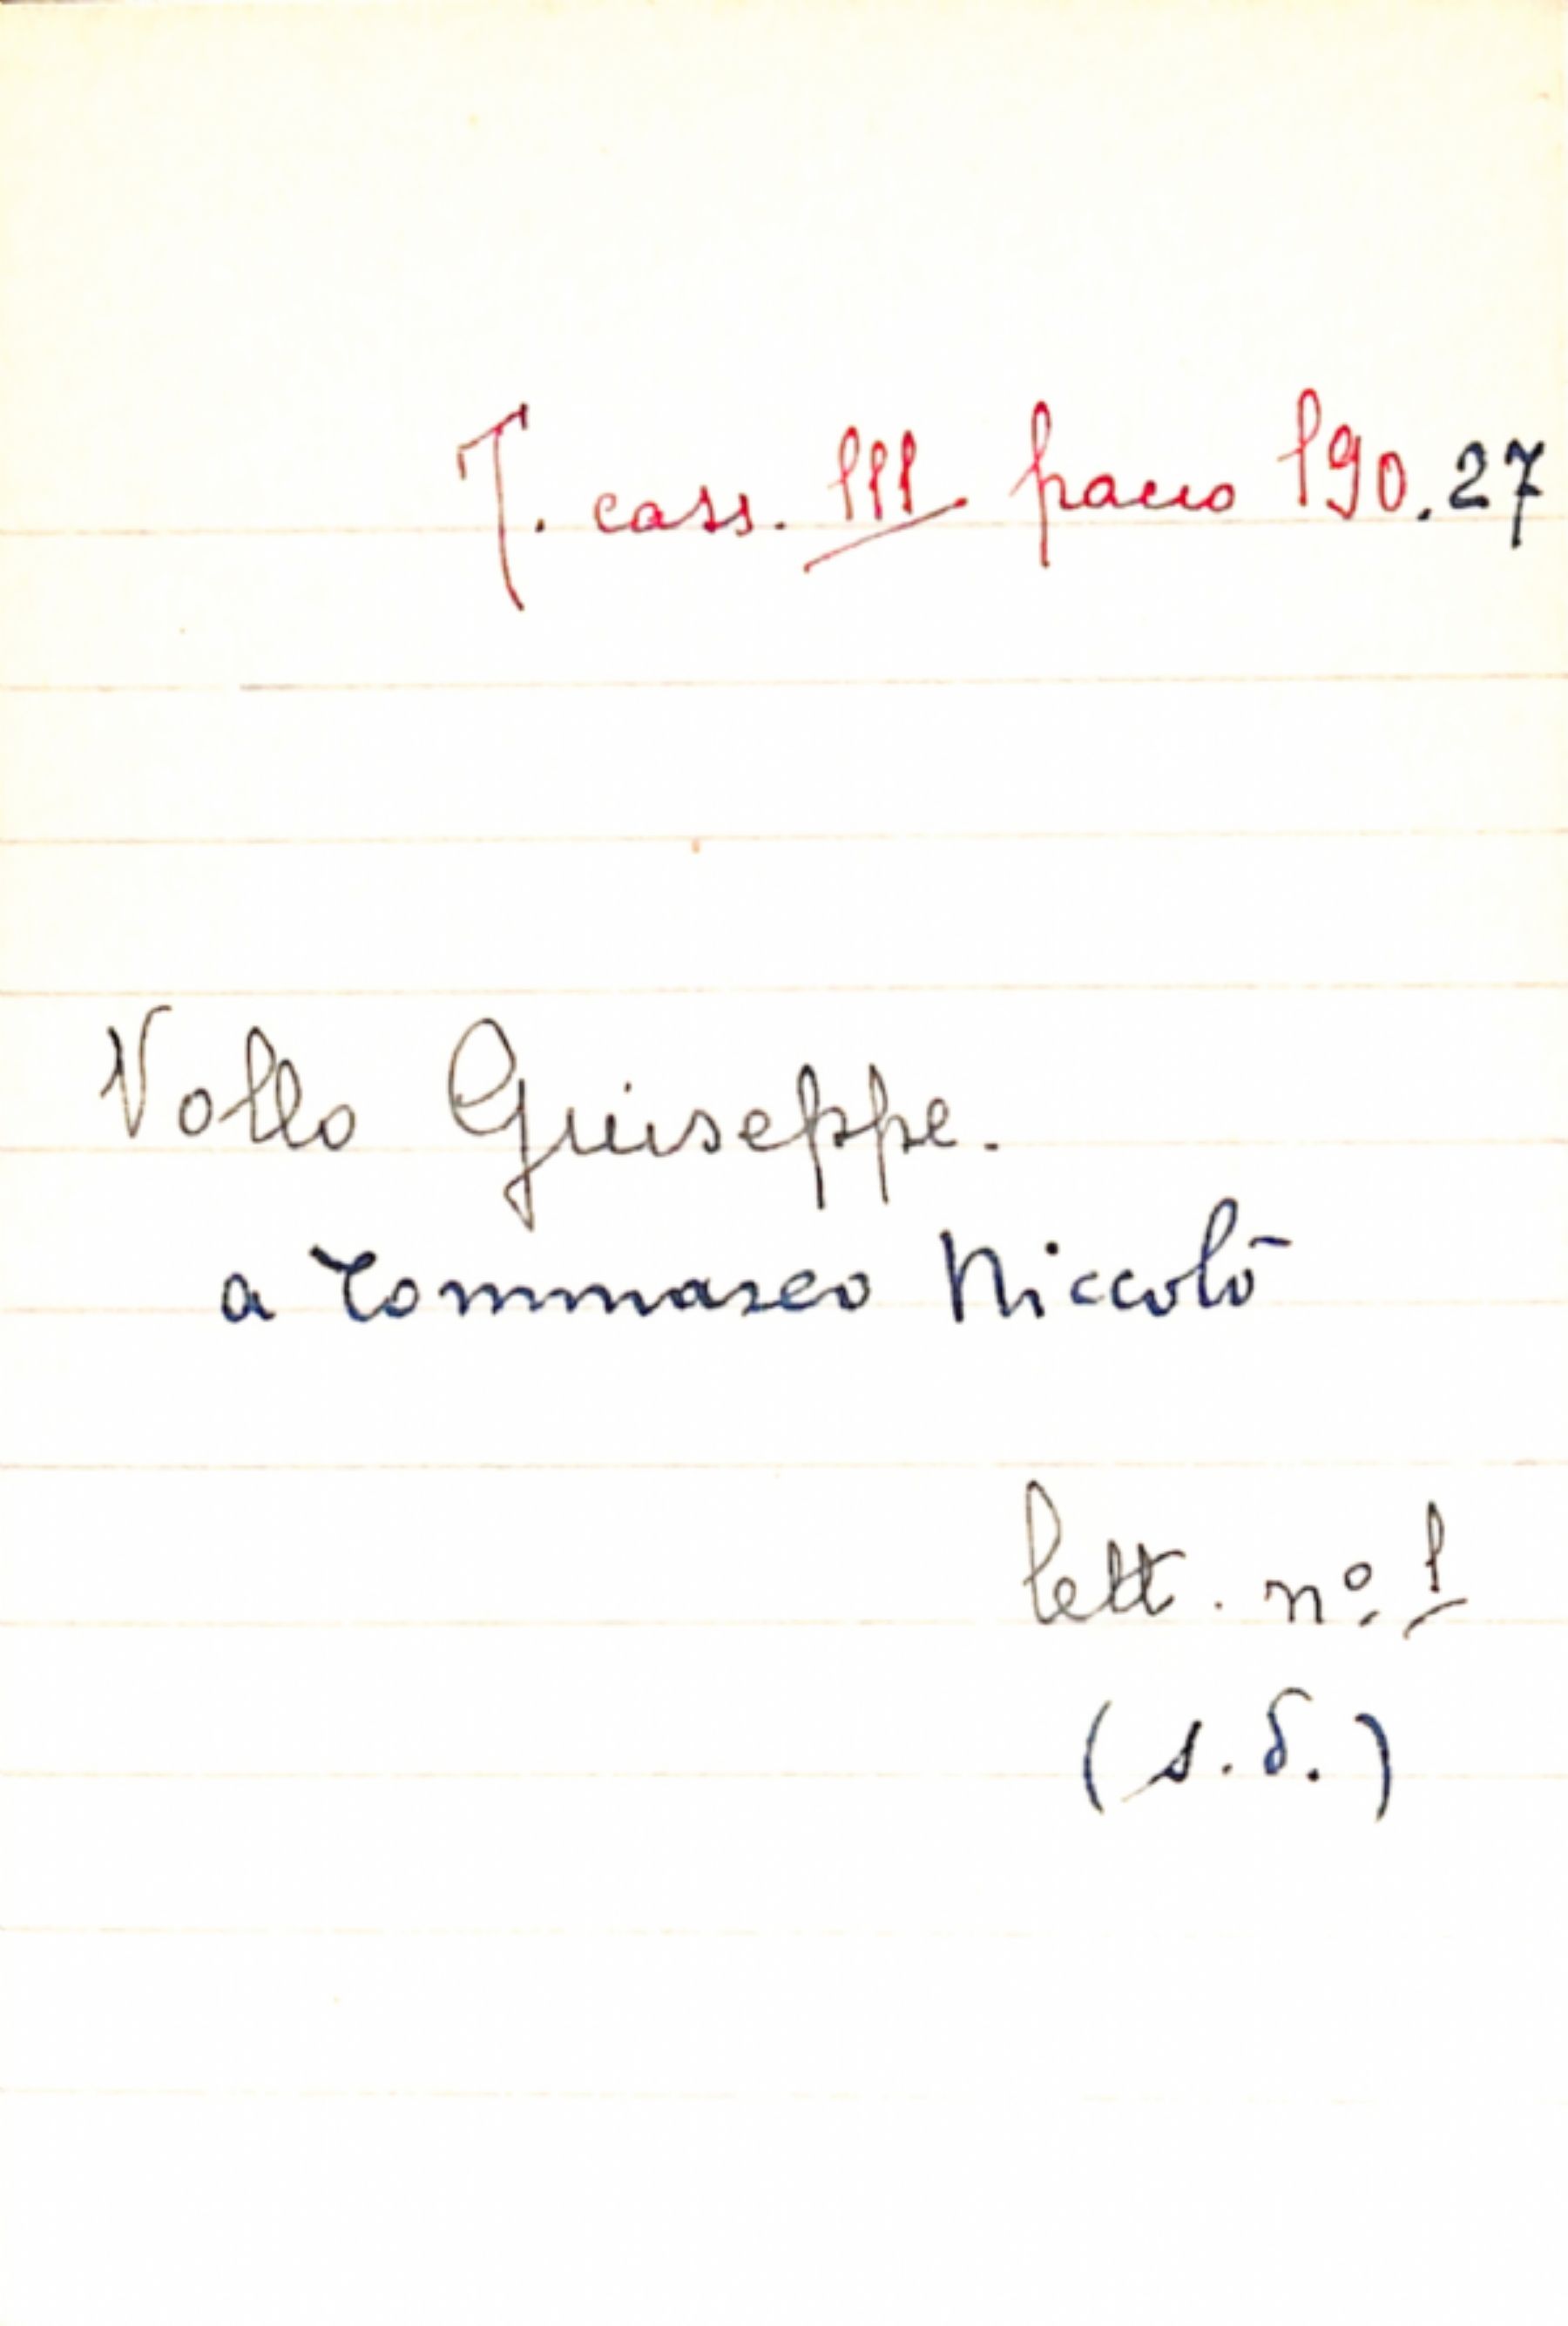 T. cass. III pacco 190.27
Vollo Giuseppe.
a Tommaseo Niccolò
lett. nº 1
(s.d.)